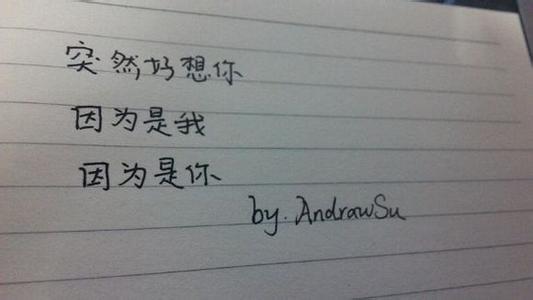 突然好想你
因为是我
因为是你
by. AndrawSu